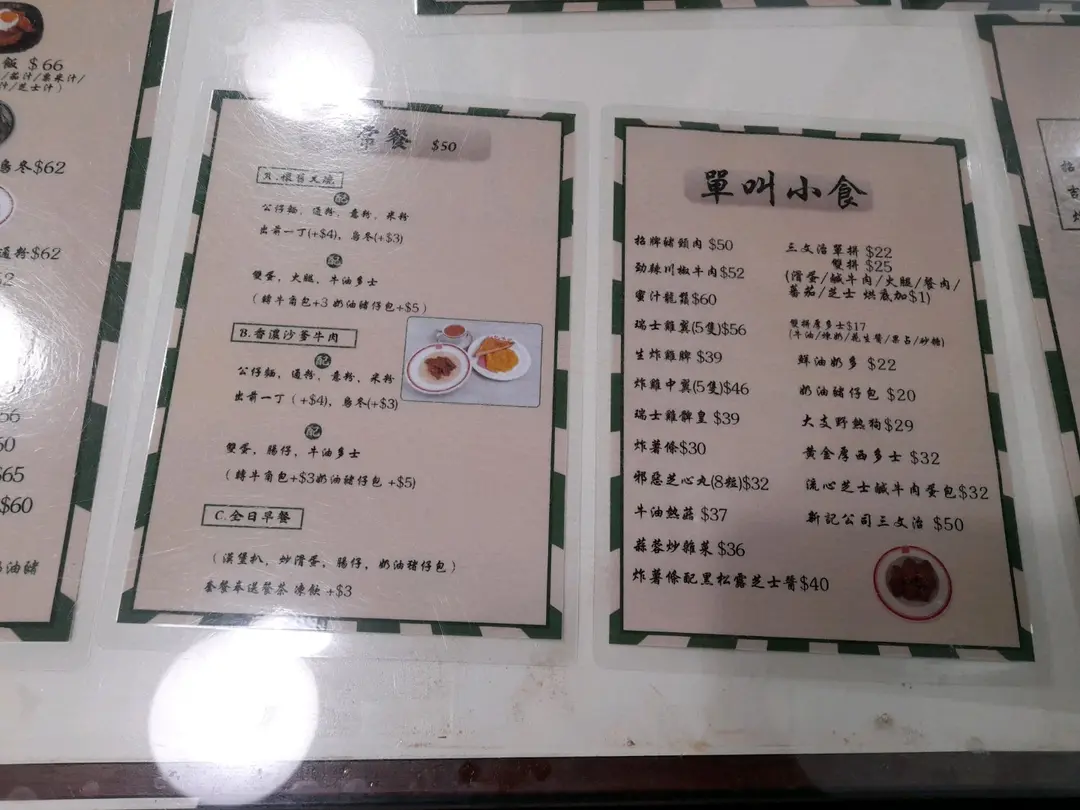 飯 $66
/茄汁/粟米汁/
汁/芝士汁)
烏冬$62
通粉$62
$65
$60
奶油豬
常餐 $50
A.懷舊叉燒
配
公仔麵, 通粉, 意粉, 米粉
出前一丁(+$4), 烏冬(+$3)
配
雙蛋, 火腿, 牛油多士
(轉牛角包+3 奶油豬仔包+$5)
B.香濃沙爹牛肉
配
公仔麵, 通粉, 意粉, 米粉
出前一丁 (+$4), 烏冬(+$3)
配
雙蛋, 腸仔, 牛油多士
(轉牛角包+$3奶油豬仔包 +$5)
C.全日早餐
(漢堡扒, 炒滑蛋, 腸仔, 奶油豬仔包)
套餐奉送餐茶 凍飲 +$3
單叫小食
招牌豬頸肉 $50
勁辣川椒牛肉$52
蜜汁龍鬚$60
瑞士雞翼(5隻)$56
生炸雞髀 $39
炸雞中翼(5隻)$46
瑞士雞髀皇 $39
炸薯條$30
邪惡芝心丸(8粒)$32
牛油熱菇 $37
蒜蓉炒雜菜 $36
炸薯條配黑松露芝士醬$40
三文治單拼 $22
雙拼 $25
(滑蛋/鹹牛肉/火腿/餐肉/
蕃茄/芝士 烘底加$1)
雙拼厚多士$17
(牛油/煉奶/花生醬/果占/砂糖)
鮮油奶多 $22
奶油豬仔包 $20
大支野熱狗$29
黃金厚西多士 $32
流心芝士鹹牛肉蛋包$32
新記公司三文治 $50